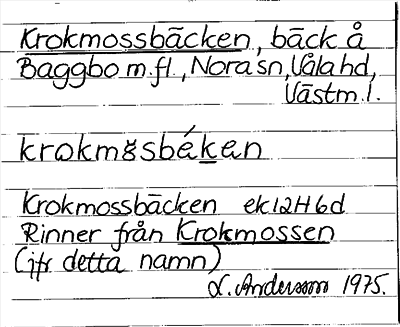 Krokmossbäcken, bäck å
Baggbo m.fl., Nora sn, Våla hd,
Västm.l.
Krokmossbäcken ek 12H6d
Rinner från Krokmossen
(jfr detta namn)
L. Andersson 1975.